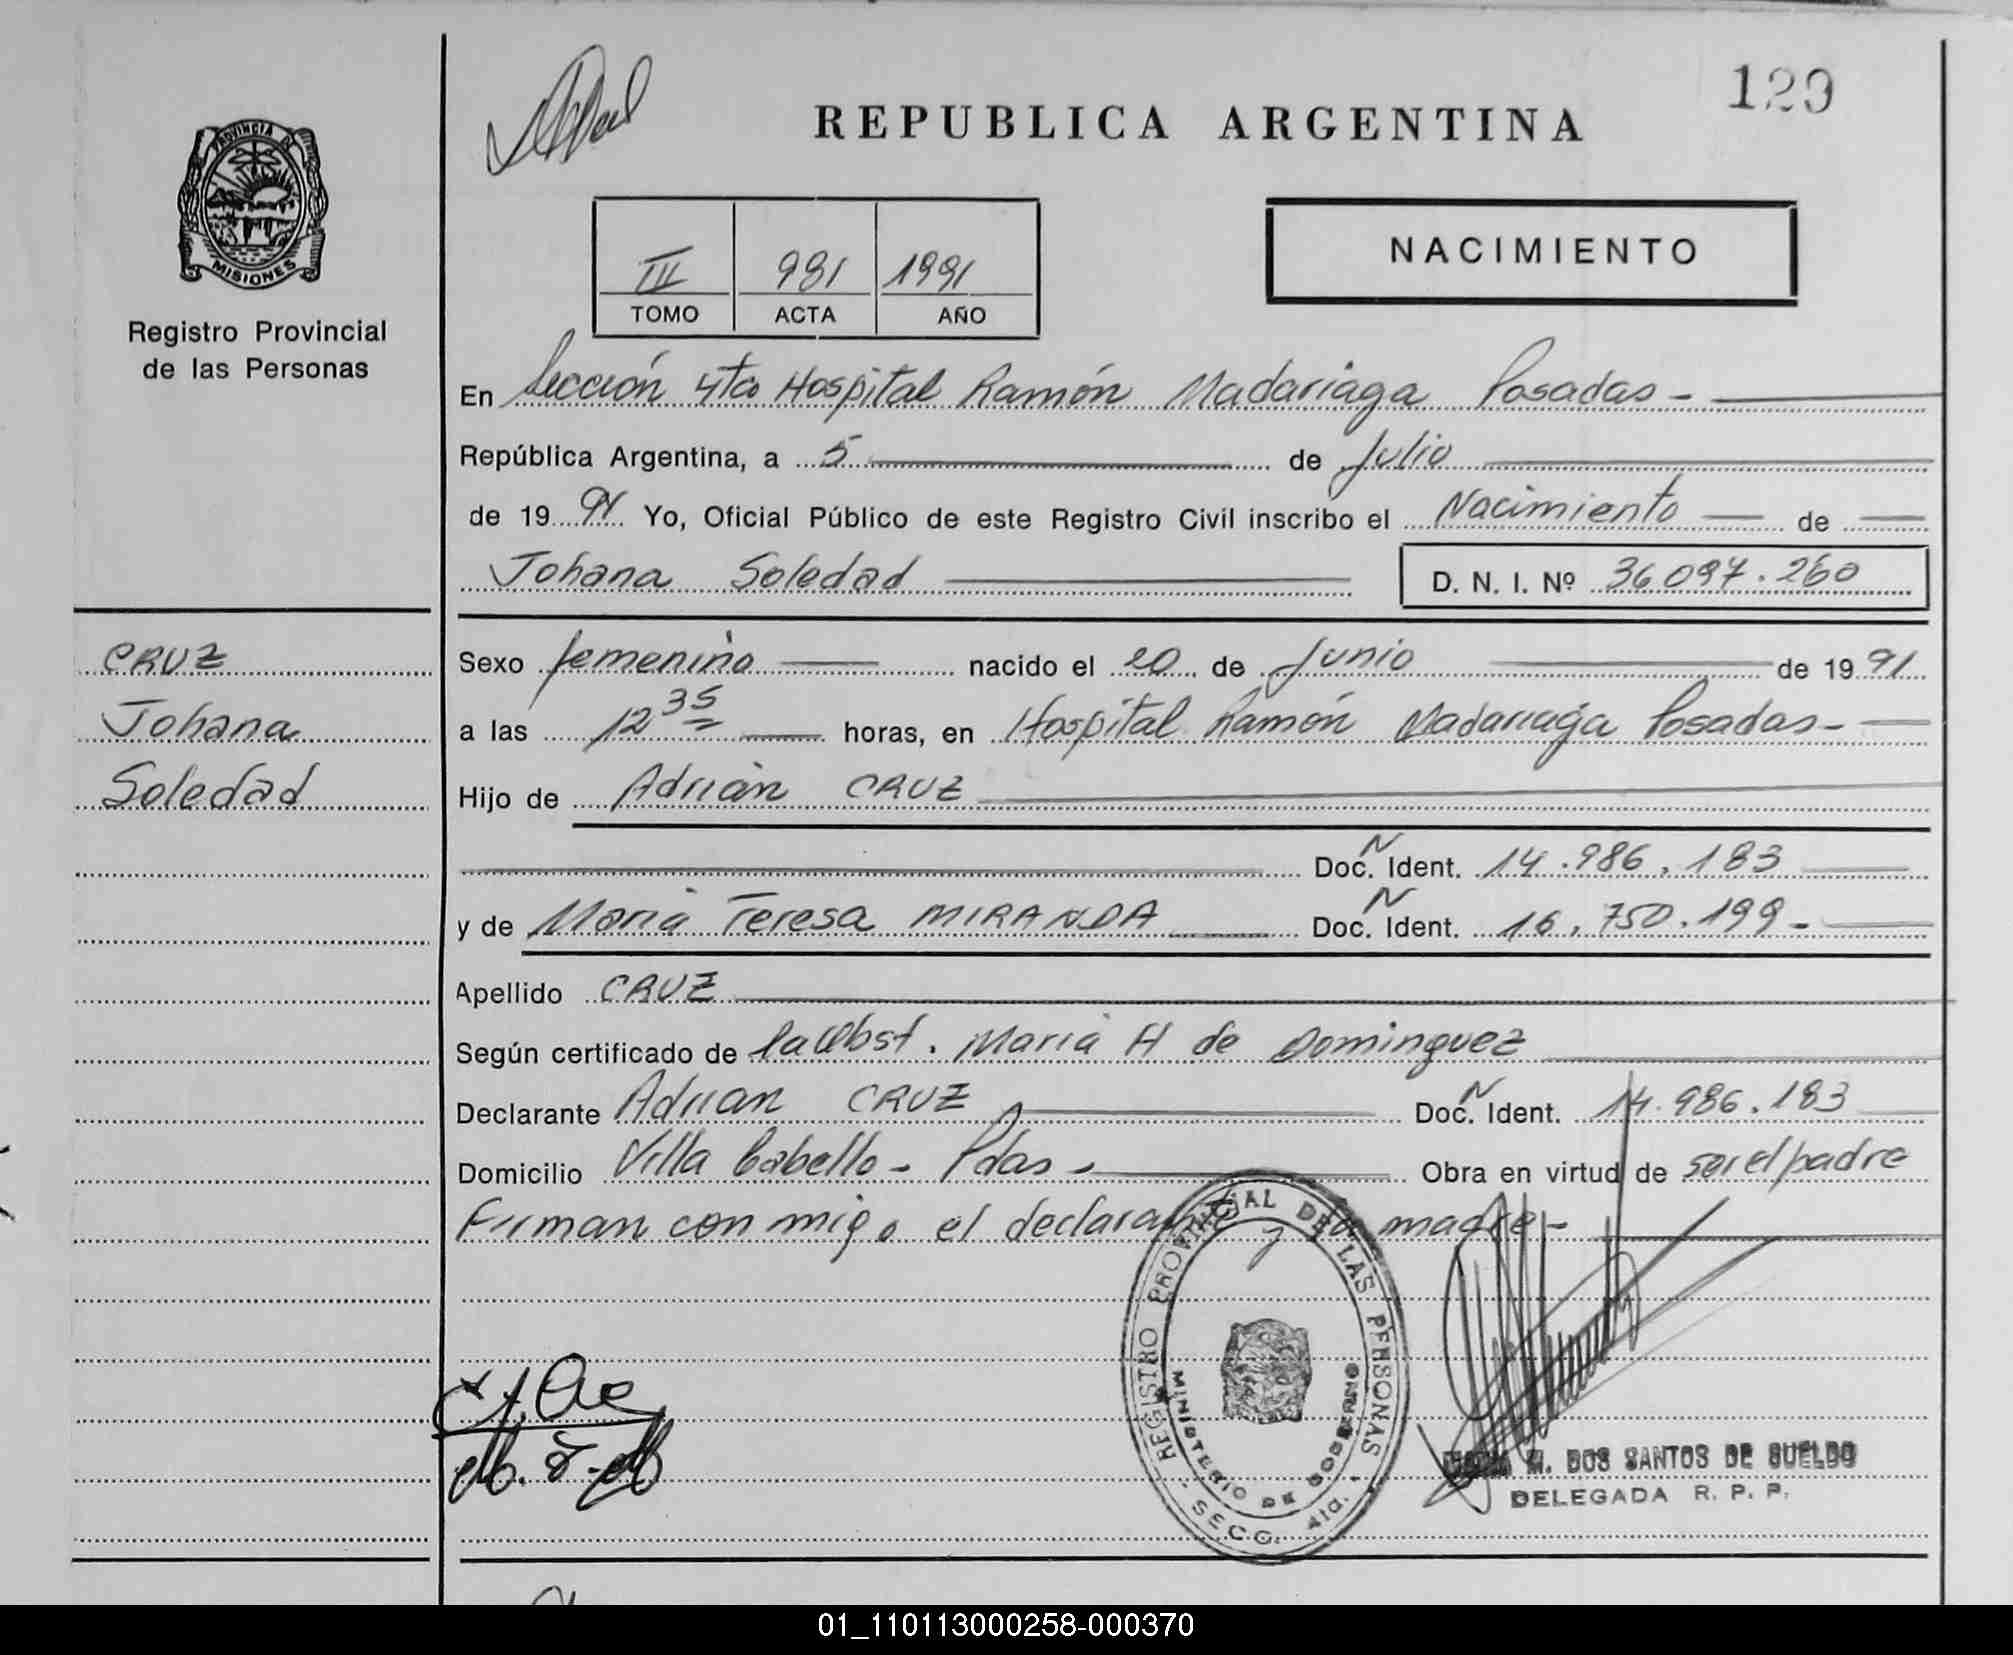 129
REPUBLICA ARGENTINA
PROVINCIA DE
MISIONES
Registro Provincial
de las Personas
III 981 1991
TOMO ACTA AÑO
NACIMIENTO
En Sección 4ta Hospital Ramón Madariaga Posadas -
República Argentina, a 5 de Julio
de 19 91 Yo, Oficial Público de este Registro Civil inscribo el Nacimiento de
Johana Soledad D. N. I. Nº 36.097.260
CRUZ
Johana
Soledad
Sexo femenino nacido el 20 de Junio de 19 91
a las 12 35 horas, en Hospital Ramón Madariaga Posadas -
Hijo de Adrián CRUZ
Doc. N Ident. 14.986.183
y de María Teresa MIRANDA Doc. N Ident. 16.750.199 -
Apellido CRUZ
Según certificado de la Obst. María H de Dominguez
Declarante Adrian CRUZ Doc. N Ident. 14.986.183
Domicilio Villa Cabello - Pdas - Obra en virtud de ser el padre
Firman con migo el declarante y la madre -
REGISTRO PROVINCIAL DE LAS PERSONAS
MINISTERIO DE GOBIERNO
SECC. 4ta.
M. DOS SANTOS DE SUELDO
DELEGADA R. P. P.
01_110113000258-000370